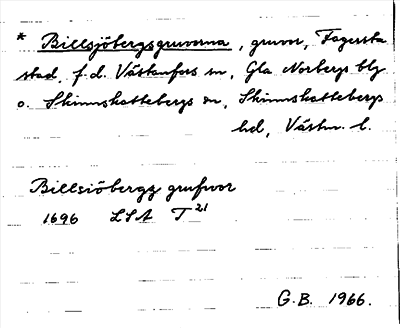 * Billsjöbergsgruvorna, gruvor, Fagersta
stad, f.d. Västanfors sn, Gla Norbergs blg
o. Skinnskattebergs sn, Skinnskattebergs
hd, Västm. l.
Billsiöbergz grufwor
1696 LSA T 21
G.B. 1966.